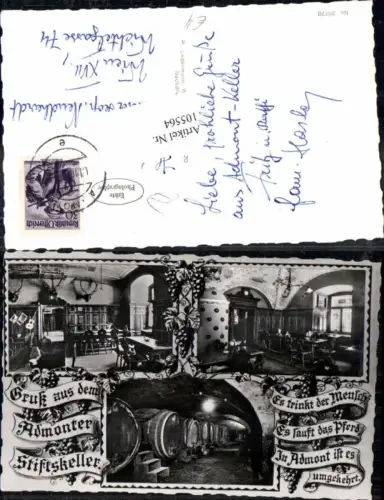 No. 35770
Artikel Nr.
105564
Liebe fröhliche Grüße
aus Admont-Keller
Fritz u.
Fam.
Wien XVII,
Wichtelgasse 74
Echte
Photographie
Republik Österreich
Gruß aus dem
Admonter
Stiftskeller.
Es trinkt der Mensch
Es sauft das Pferd
In Admont ist es
umgekehrt.